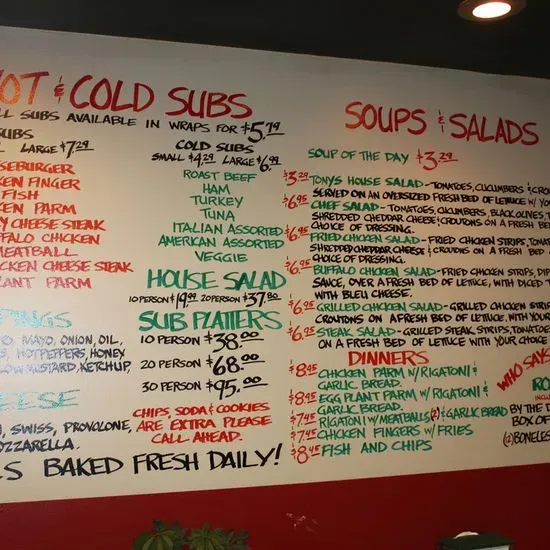 OT & COLD SUBS
LL SUBS AVAILABLE IN WRAPS FOR $5.79
SUBS
LARGE $7.29
ESEBURGER
KEN FINGER
FISH
KEN PARM
Y CHEESE STEAK
FALO CHICKEN
MEATBALL
CKEN CHEESE STEAK
PLANT PARM
COLD SUBS
SMALL $4.29 LARGE $6.99
ROAST BEEF
HAM
TURKEY
TUNA
ITALIAN ASSORTED
AMERICAN ASSORTED
VEGGIE
HOUSE SALAD
10 PERSON $19.99 20 PERSON $37.80
SUB PLATTERS
10 PERSON $38.00
20 PERSON $68.00
30 PERSON $95.00
CHIPS, SODA & COOKIES
ARE EXTRA PLEASE
CALL AHEAD.
PINGS
MAYO, ONION, OIL,
S, HOTPEPPERS, HONEY
LOW MUSTARD, KETCHUP,
EESE
SWISS, PROVOLONE,
OZZARELLA.
LS BAKED FRESH DAILY!
SOUPS & SALADS
SOUP OF THE DAY $3.29
$3.29 TONYS HOUSE SALAD - TOMATOES, CUCUMBERS & CRO
SERVED ON AN OVERSIZED FRESH BED OF LETTUCE W/ YO
$6.95 CHEF SALAD - TOMATOES, CUCUMBERS, BLACK OLIVES, T
SHREDDED CHEDDAR CHEESE & CROUTONS ON A FRESH BE
CHOICE OF DRESSING.
$6.95 FRIED CHICKEN SALAD - FRIED CHICKEN STRIPS, TOMA
SHREDDED CHEDDAR CHEESE & CROUTONS ON A FRESH BED
CHOICE OF DRESSING.
$6.95 BUFFALO CHICKEN SALAD - FRIED CHICKEN STRIPS, DIP
SAUCE, OVER A FRESH BED OF LETTUCE, WITH DICED T
WITH BLEU CHEESE.
$6.95 GRILLED CHICKEN SALAD - GRILLED CHICKEN STRIP
CROUTONS ON A FRESH BED OF LETTUCE, WITH YOUR
$6.95 STEAK SALAD - GRILLED STEAK STRIPS, TOMATOE
ON A FRESH BED OF LETTUCE WITH YOUR CHOICE
DINNERS
$8.95 CHICKEN PARM W/ RIGATONI &
GARLIC BREAD.
$8.95 EGG PLANT PARM W/ RIGATONI &
GARLIC BREAD.
$7.45 RIGATONI W/ MEATBALLS (2) & GARLIC BREAD
$7.45 CHICKEN FINGERS W/ FRIES
$8.45 FISH AND CHIPS
WHO SAYS
RO
INCLU
BY THE
BOX OF
BONELES